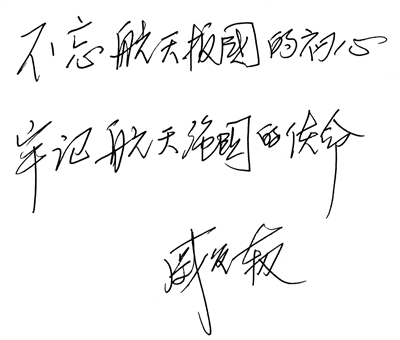 不忘航天报國的初心
牢记航天强國的使命
戚发轫